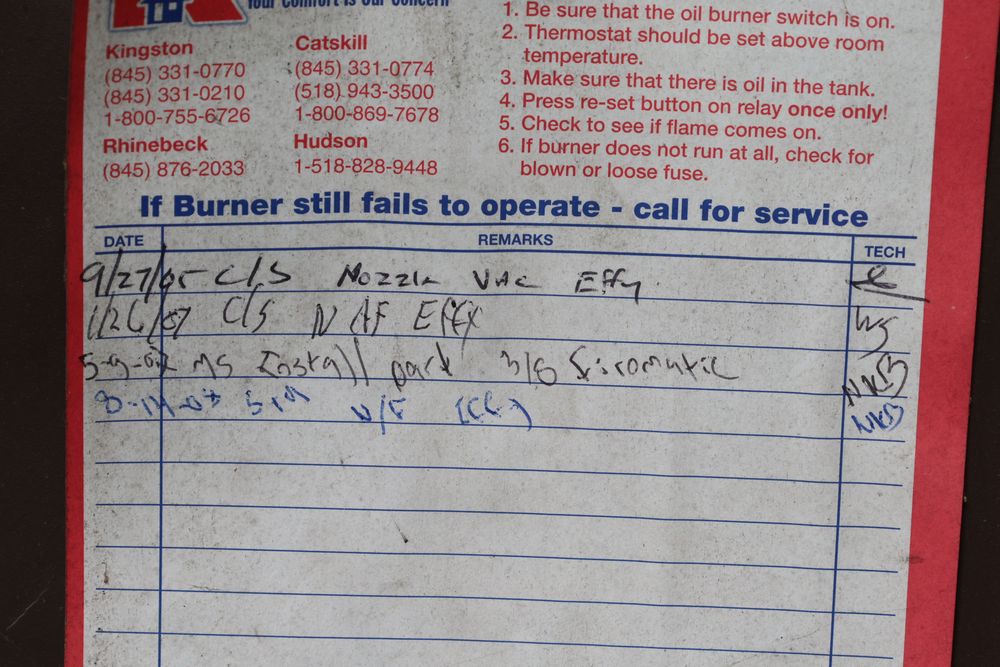 Your Comfort is Our Concern
Kingston
(845) 331-0770
(845) 331-0210
1-800-755-6726
Rhinebeck
(845) 876-2033
Catskill
(845) 331-0774
(518) 943-3500
1-800-869-7678
Hudson
1-518-828-9448
1. Be sure that the oil burner switch is on.
2. Thermostat should be set above room
temperature.
3. Make sure that there is oil in the tank.
4. Press re-set button on relay once only!
5. Check to see if flame comes on.
6. If burner does not run at all, check for
blown or loose fuse.
If Burner still fails to operate - call for service
DATE REMARKS TECH
9/27/05 C/S Nozzle VAC Effy
1/26/07 C/S N AF EFFY WS
5-9-07 MS Install part 3/8 Firomatic NKB
8-14-07 N/F NKB